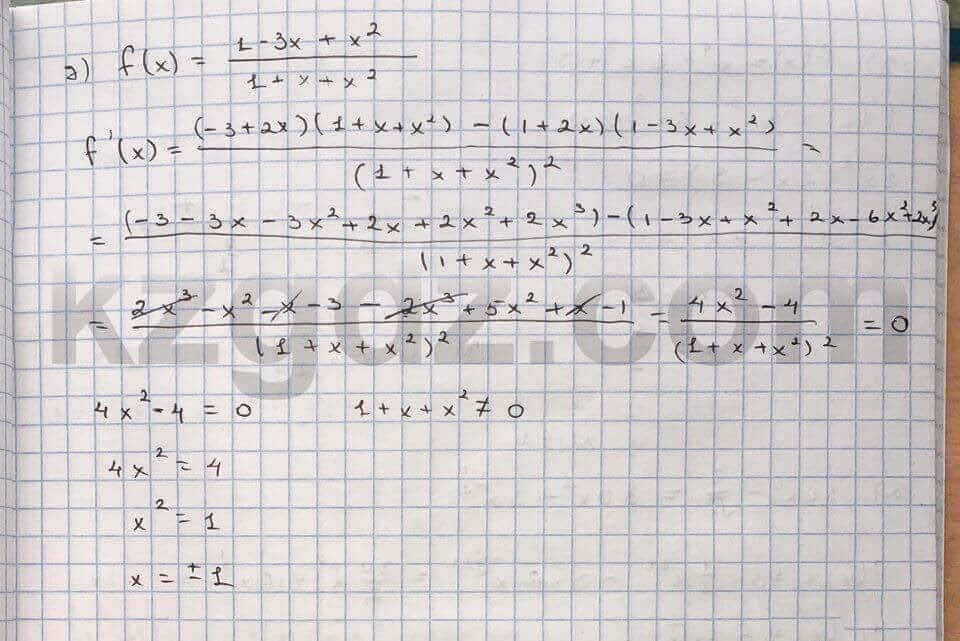 2) f(x) = (1-3x+x²)/(1+x+x²)
f'(x) = ((-3+2x)(1+x+x²) - (1+2x)(1-3x+x²))/(1+x+x²)² =
= ((-3-3x-3x²+2x+2x²+2x³)-(1-3x+x²+2x-6x²+2x³))/(1+x+x²)²
= (2x³-x²-x-3-2x³+5x²+x-1)/(1+x+x²)² = (4x²-4)/(1+x+x²)² = 0
4x²-4 = 0 1+x+x² ≠ 0
4x² = 4
x² = 1
x = ±1
kzgdz.com